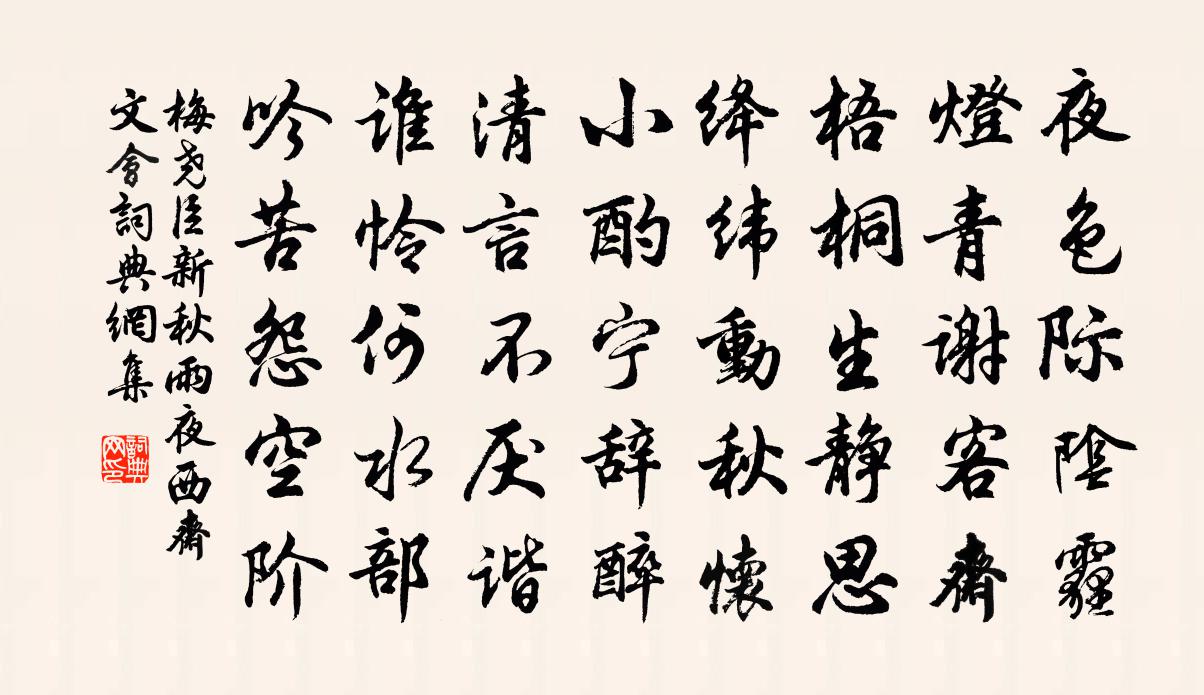 夜色际陰霾
燈青谢客齋
梧桐生静思
绛纬動秋懷
小酌宁辞醉
清言不厌谐
谁怜何水部
吟苦怨空阶
梅尧臣新秋雨夜西齋
文會詞典網集
詞典网印